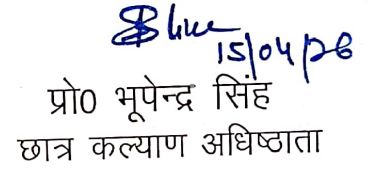 15/04/26
प्रो0 भूपेन्द्र सिंह
छात्र कल्याण अधिष्ठाता